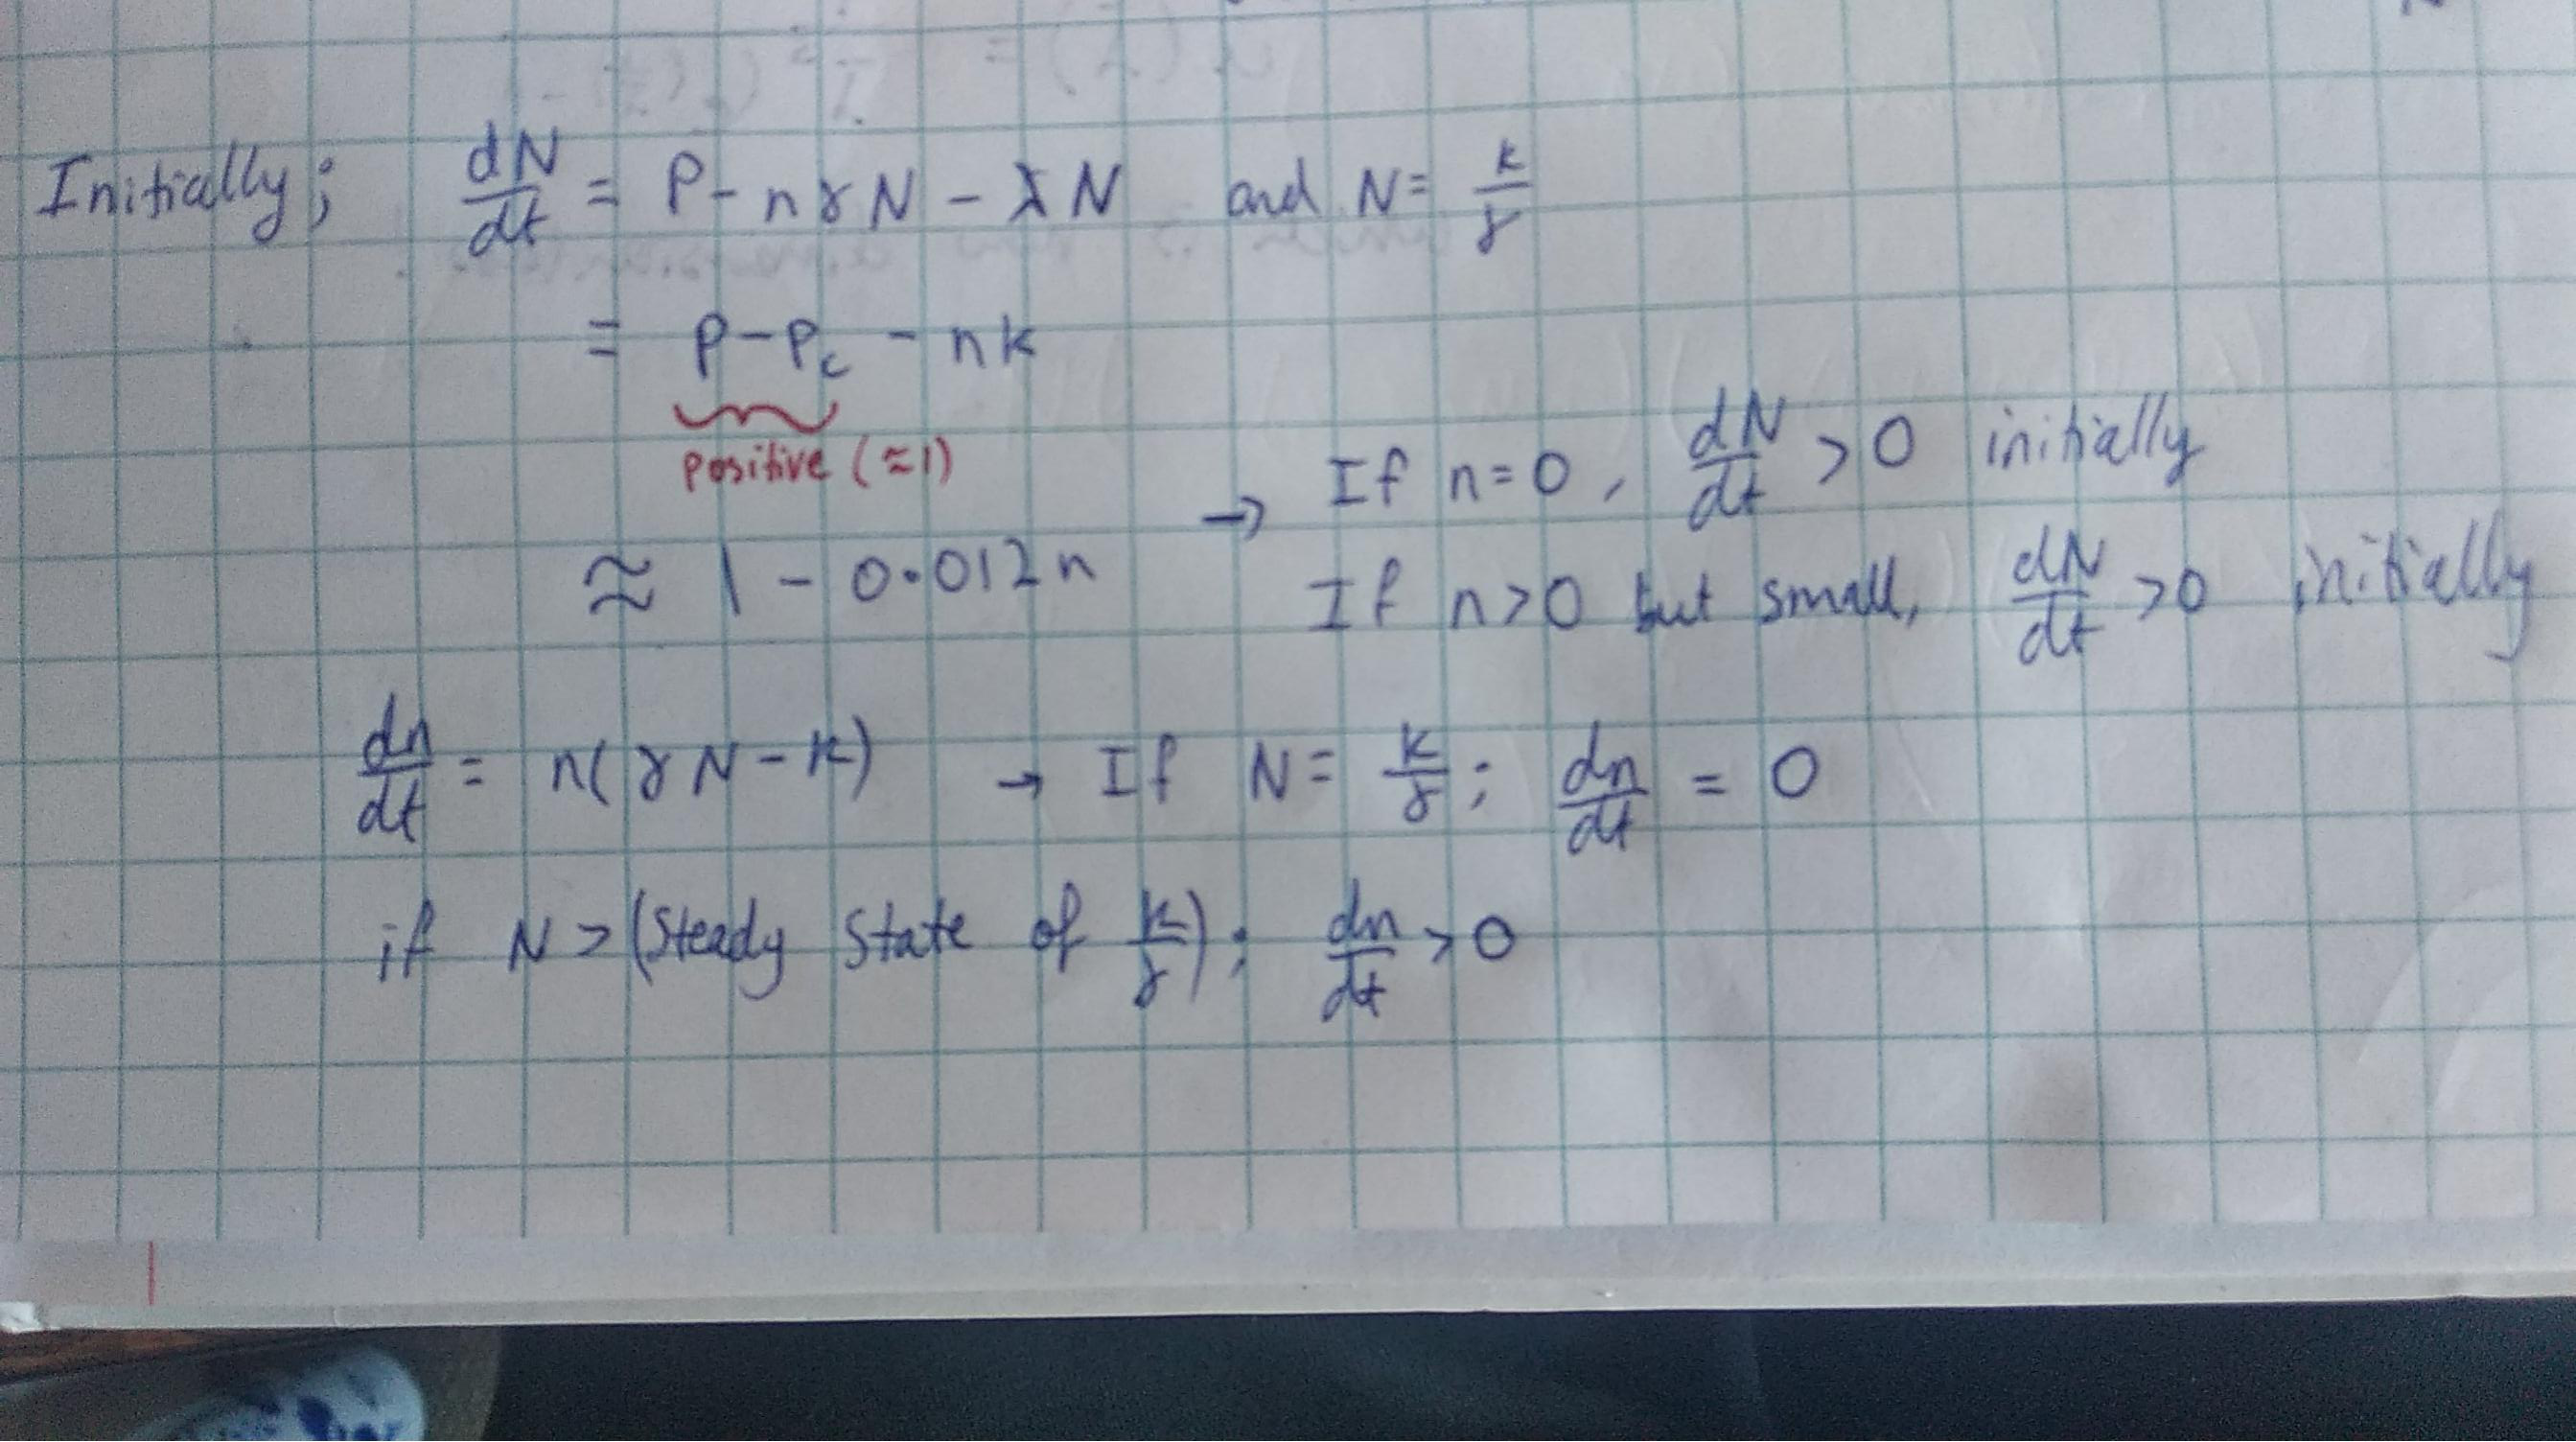 Initially; dN/dt = P - nγN - λN and N = k/γ
= P - Pc - nk
positive (≈1)
≈ 1 - 0.012n → If n=0, dN/dt > 0 initially
If n>0 but small, dN/dt >0 initially
dn/dt = n(γN - k) → If N = k/γ; dn/dt = 0
if N > (Steady State of k/γ); dn/dt > 0